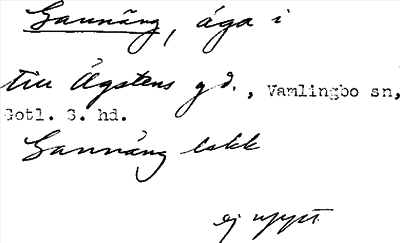 Gannäng, äga i
till Ägstens gd., Vamlingbo sn,
Gotl. S. hd.
Gannäng
ej uppt.